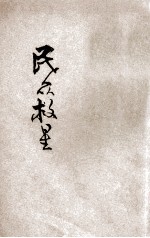 民众救星